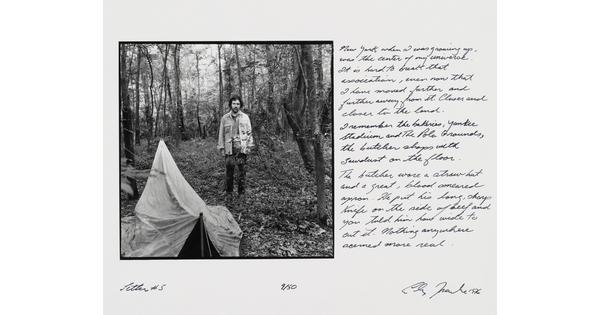 New York, when I was growing up,
was the center of my universe.
It is hard to break that
association, even now that
I have moved farther and
farther away from it. Closer and
closer to the land.
I remember the bakeries, Yankee
Stadium and The Polo Grounds,
the butcher shops with
sawdust on the floor.
The butcher wore a straw hat
and a great, blood smeared
apron. He put his long, sharp
knife on the side of beef and
you told him how wide to
cut it. Nothing anywhere
seemed more real.
#5
9/50